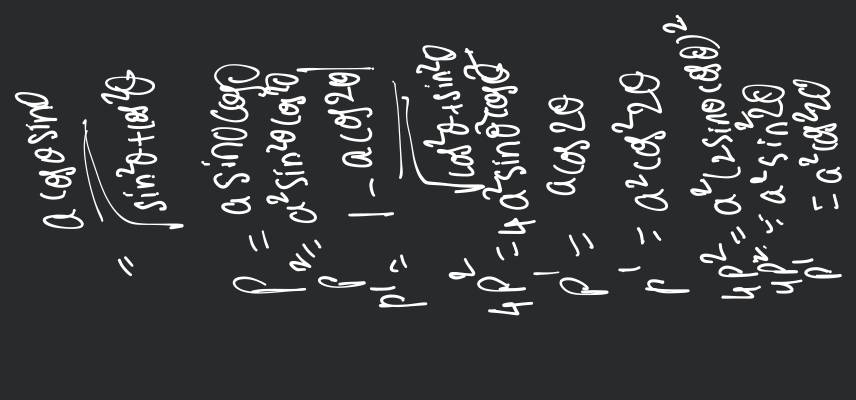 = a cosθ sinθ / √(sin²θ + cos²θ)
p = a sinθ cosθ
p² = a² sin²θ cos²θ
p' = |-a cos2θ| / √(cos²θ + sin²θ)
4p² = 4a² sin²θ cos²θ
p' = a cos2θ
p' = a² cos²2θ
4p² = a² (2 sinθ cosθ)²
4p² = a² sin²2θ
p' = a² cos²2θ